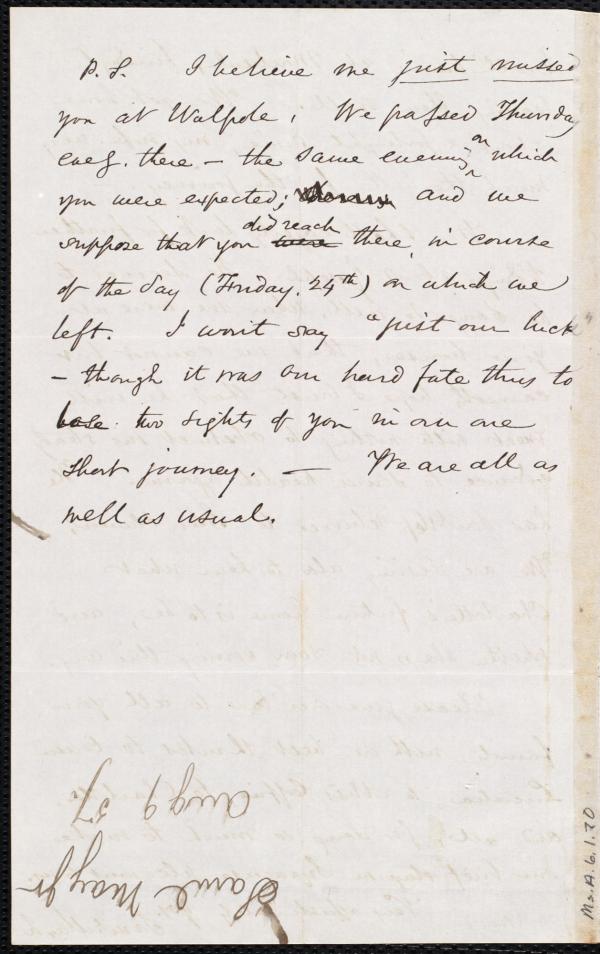 P.S. I believe we just missed
you at Walpole. We passed Thursday
eveg. there – the same evening on which
you were expected; and we
suppose that you did reach there, in course
of the day (Friday. 24th) on which we
left. I won't say "just our luck"
– though it was our hard fate thus to
lose two sights of you in our one
short journey. — We are all as
well as usual.
Saml May Jr
Aug 9 57
Ms.A.6.1.20